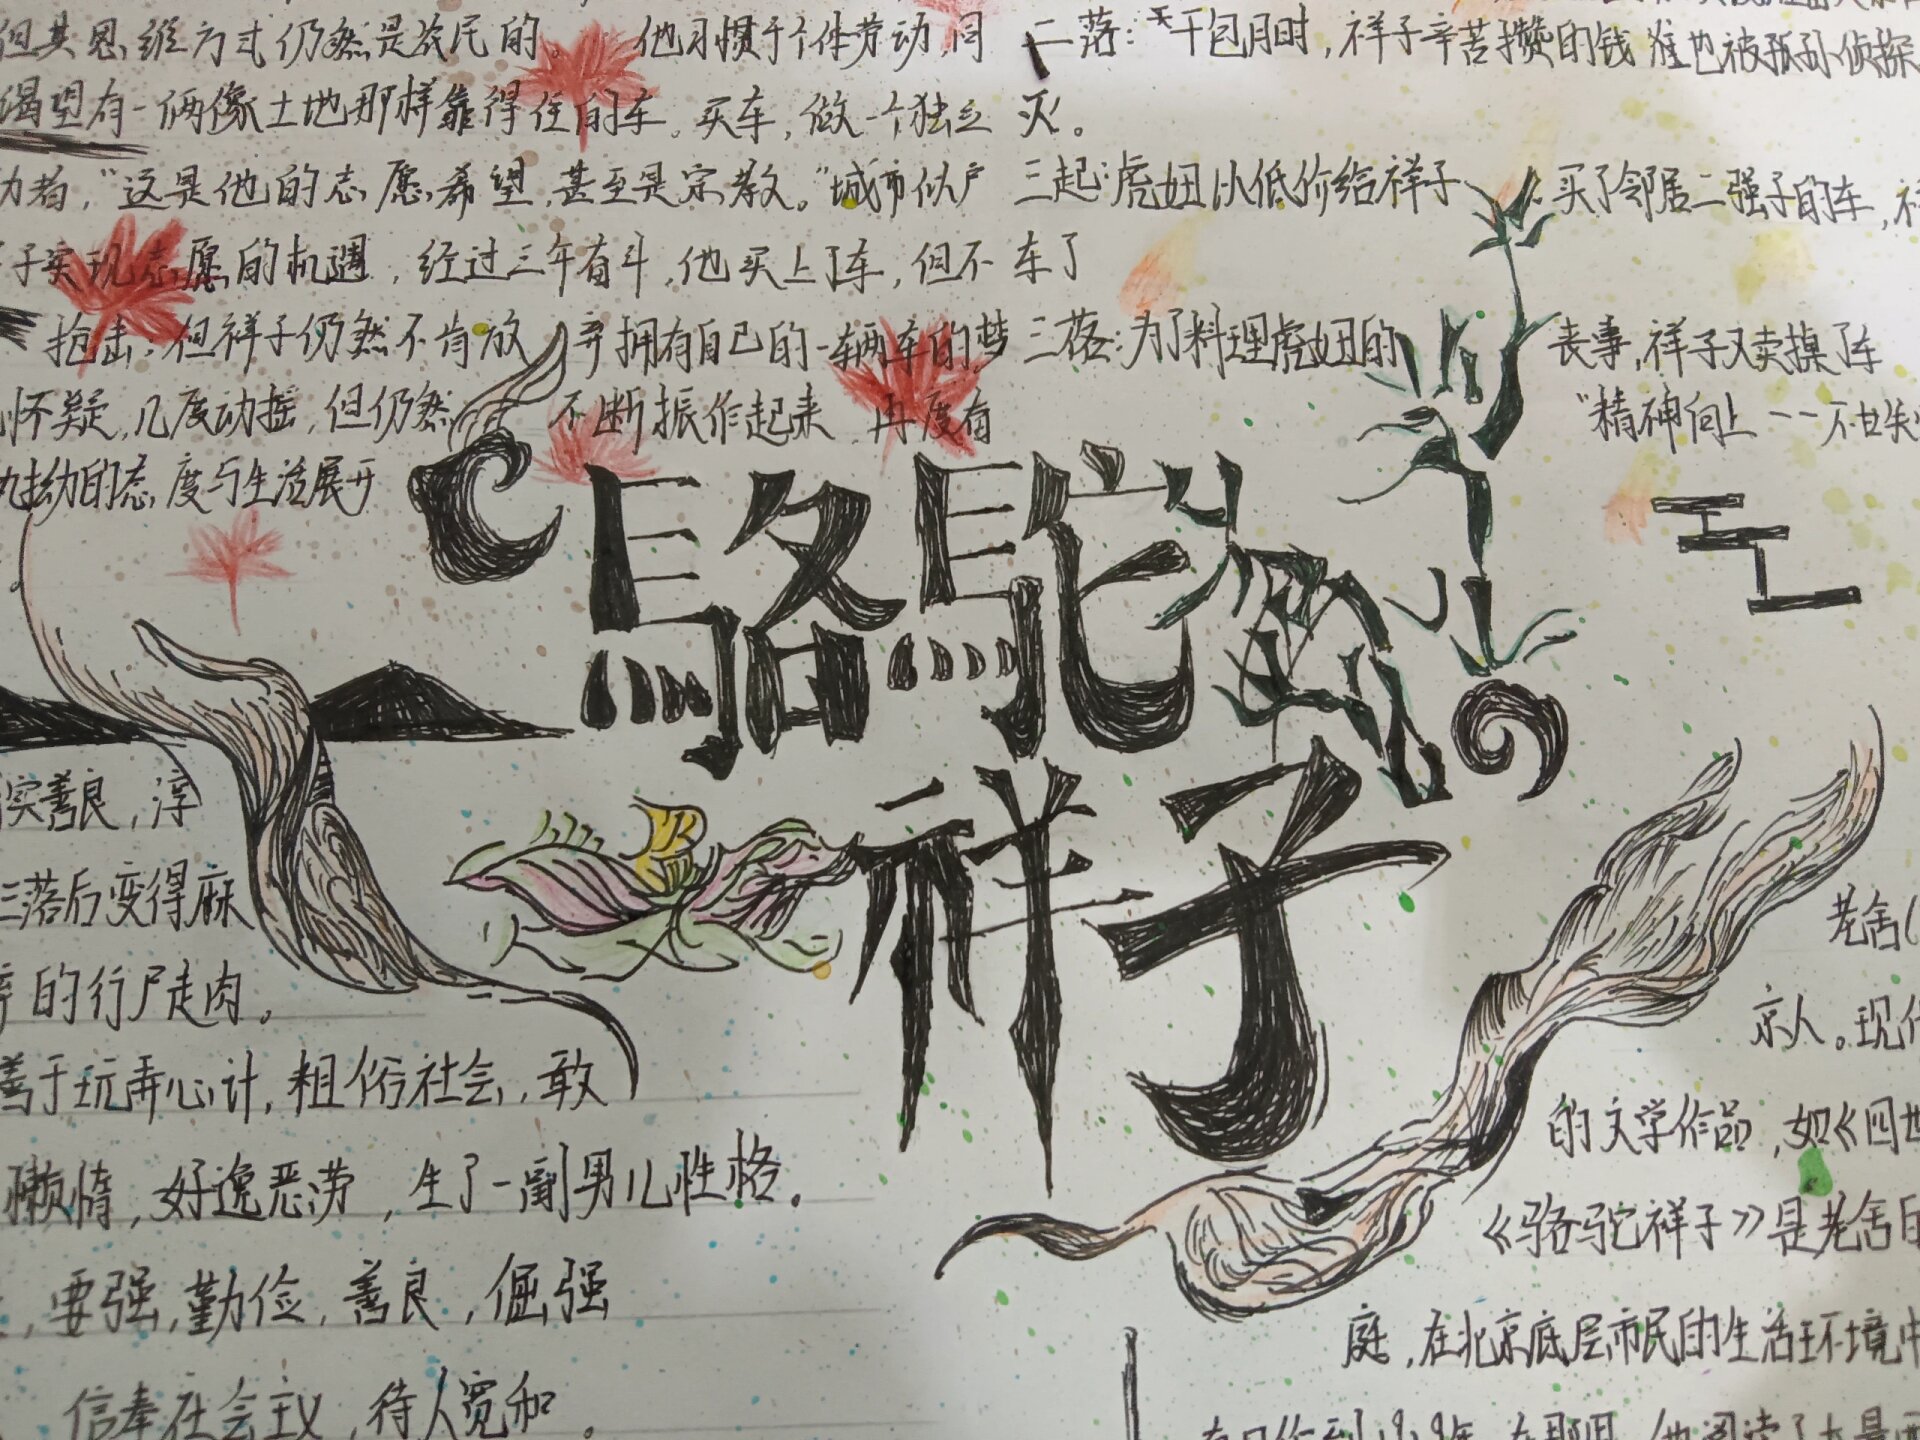 但其思维方式仍然是农民的。他习惯于个体劳动,同
渴望有一俩像土地那样靠得住的车。买车,做一个独立
力者,“这是他的志愿希望,甚至是宗教。”城市似户
子实现志愿的机遇,经过三年奋斗,他买上了车,但不
抢击:但祥子仍然不肯放弃拥有自己的一辆车的梦
怀疑,几度动摇,但仍然不断振作起来,再度奋
拗的态度与生活展开
二落:干包月时,祥子辛苦攒的钱
也被孤孙侦探
灭。
三起:虎妞以低价给祥子买了邻居二强子的车,祥
车了
三落:为了料理虎妞的丧事,祥子又卖掉了车
“精神向上一一不甘失
骆驼
祥子
实善良,淳
三落后变得麻
的行尸走肉。
善于玩弄心计,粗俗社会,敢
懒惰,好逸恶劳,生了一副男儿性格。
,要强,勤俭,善良,倔强
信奉社会主义,待人宽和。
老舍(
京人。现代
的文学作品,如《四世
《骆驼祥子》是老舍的
庭,在北京底层市民的生活环境中